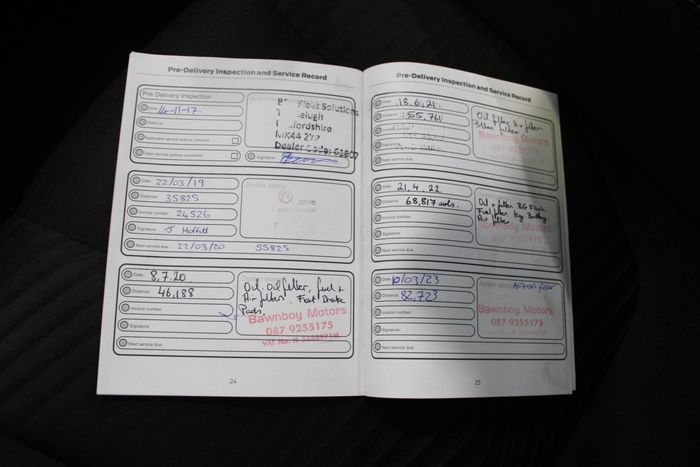 Pre-Delivery Inspection and Service Record
Pre Delivery Inspection
Date: 14-11-17
Distance:
Applicable service actions checked
Open service actions completed
Signature:
Fleet Solutions
MK44 2YP
Dealer Code: 61607
Date: 22/03/19
Distance: 35825
Invoice number: 24526
Signature: J Moffitt
Next service due: 22/03/20 55825
Dealer stamp
Date: 8.7.20
Distance: 46,188
Invoice number:
Signature:
Next service due:
Oil, Oil filter, fuel +
Air filter. Front Brake
Pads.
Bawnboy Motors
087 9255175
VAT No. IE
24
Pre-Delivery Inspection and Service Record
Date: 18.6.21.
Distance: 55,760
Signature:
Next service due:
Oil filter, Air filter
Pollen filter
Bawnboy Motors
087 9255175
Date: 21.4.22
Distance: 68,817 mls.
Invoice number:
Signature:
Next service due:
Oil + filter, BG Flush,
Fuel filter, Key Battery,
Air filter
Bawnboy Motors
087 9255175
Date: 10/03/23
Distance: 82,723
Invoice number:
Signature:
Next service due:
Dealer stamp
Bawnboy Motors
087 9255175
25